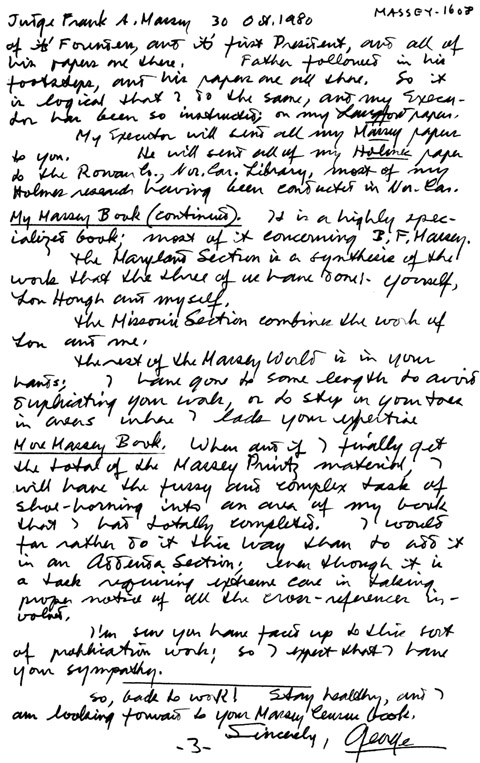 MASSEY-1608
Judge Frank A. Massey 30 Oct. 1980
of its Founders, and its first President, and all of
his papers are there. Father followed in his
footsteps, and his papers are all there. So it
is logical that I do the same, and my Execu-
tor has been so instructed, on my papers.
My Executor will send all my Massey papers
to you. He will send all of my Holmes papers
to the Rowan Co., Nor. Car. Library, most of my
Holmes research having been conducted in Nor. Car.
My Massey Book (continued). It is a highly spec-
ialized book; most of it concerning B. F. Massey.
The Maryland Section is a synthesis of the
work that the three of us have done:- yourself,
Lon Hough and myself.
The Missouri Section combines the work of
Lon and me.
The rest of the Massey World is in your
hands; I have gone to some length to avoid
duplicating your work, or to step in your toes
in areas where I lack your expertise
More Massey Book. When and if I finally get
the total of the Massey Printz material, I
will have the fussy and complex task of
shoe-horning into an area of my book
that I had totally completed. I would
far rather do it this way than to add it
in an Addenda Section; even though it is
a task requiring extreme care in taking
proper notice of all the cross-references in-
volved.
I'm sure you have faced up to this sort
of publication work; so I expect that I have
your sympathy.
So, back to work! Stay healthy, and I
am looking forward to your Massey Census book.
Sincerely, George
-3-